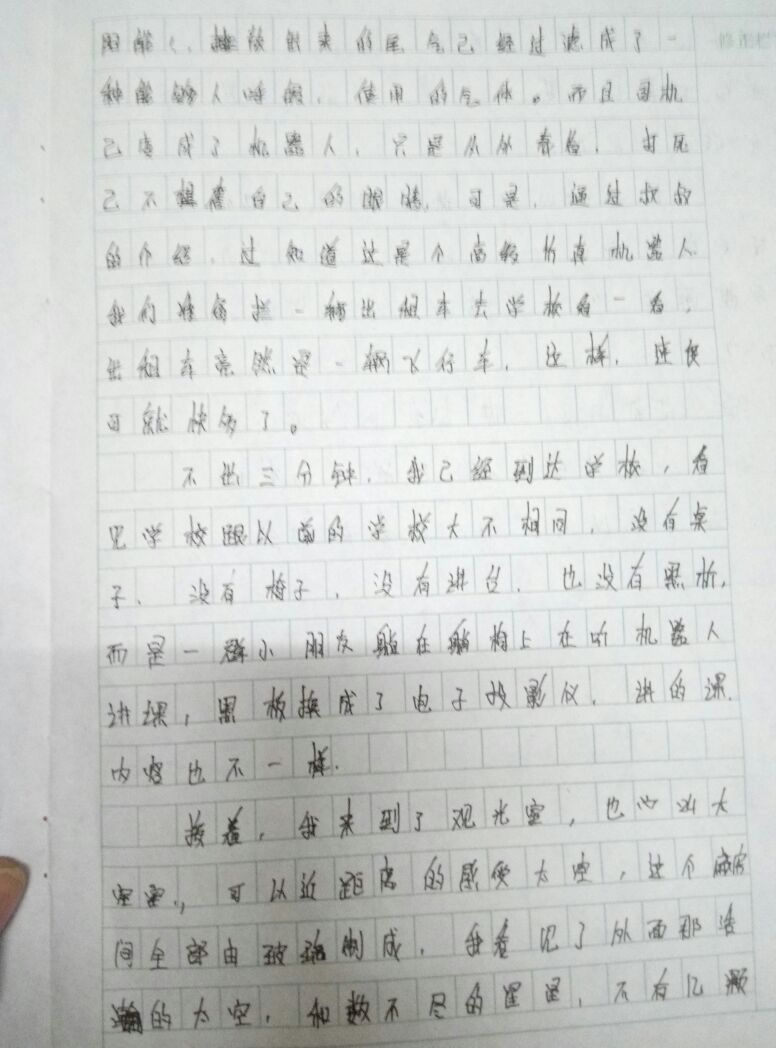 排放出来的尾气已经过滤成了一
种能够人呼吸、使用的气体。而且司机
已变成了机器人,只是从外看,打死
已不相信自己的眼睛,可是,通过叔叔
的介绍,过知道这是个高级仿真机器人
我们准备拦一辆出租车去学校看一看,
出租车竟然是一辆飞行车,这样,速度
可就快多了。
不出三分钟,我已经到达学校,看
见学校跟以前的学校大不相同,没有桌
子、没有椅子,没有讲台、也没有黑板,
而是一群小朋友躺在躺椅上在听机器人
讲课,黑板换成了电子投影仪,讲的课
内容也不一样.
接着,我来到了观光室,也叫太
空室,可以近距离的感受太空,这个房
间全部由玻璃制成,我看见了外面那浩
瀚的太空,和数不尽的星星,不有几颗